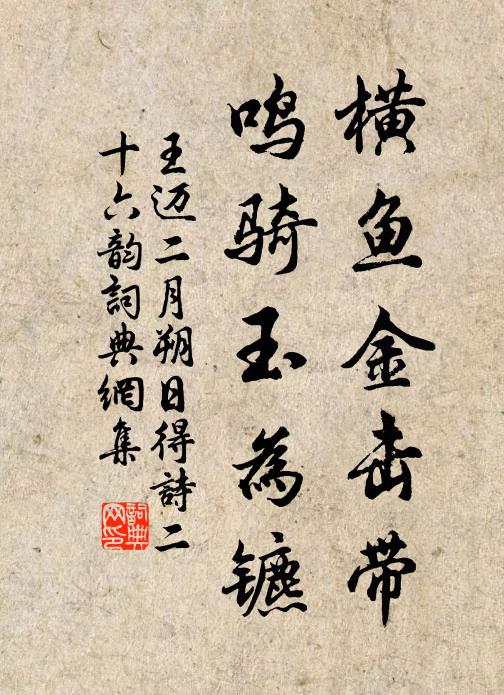 横鱼金击带
鸣骑玉为镳
王迈二月朔日得詩二
十六韵詞典網集
詞典
网印